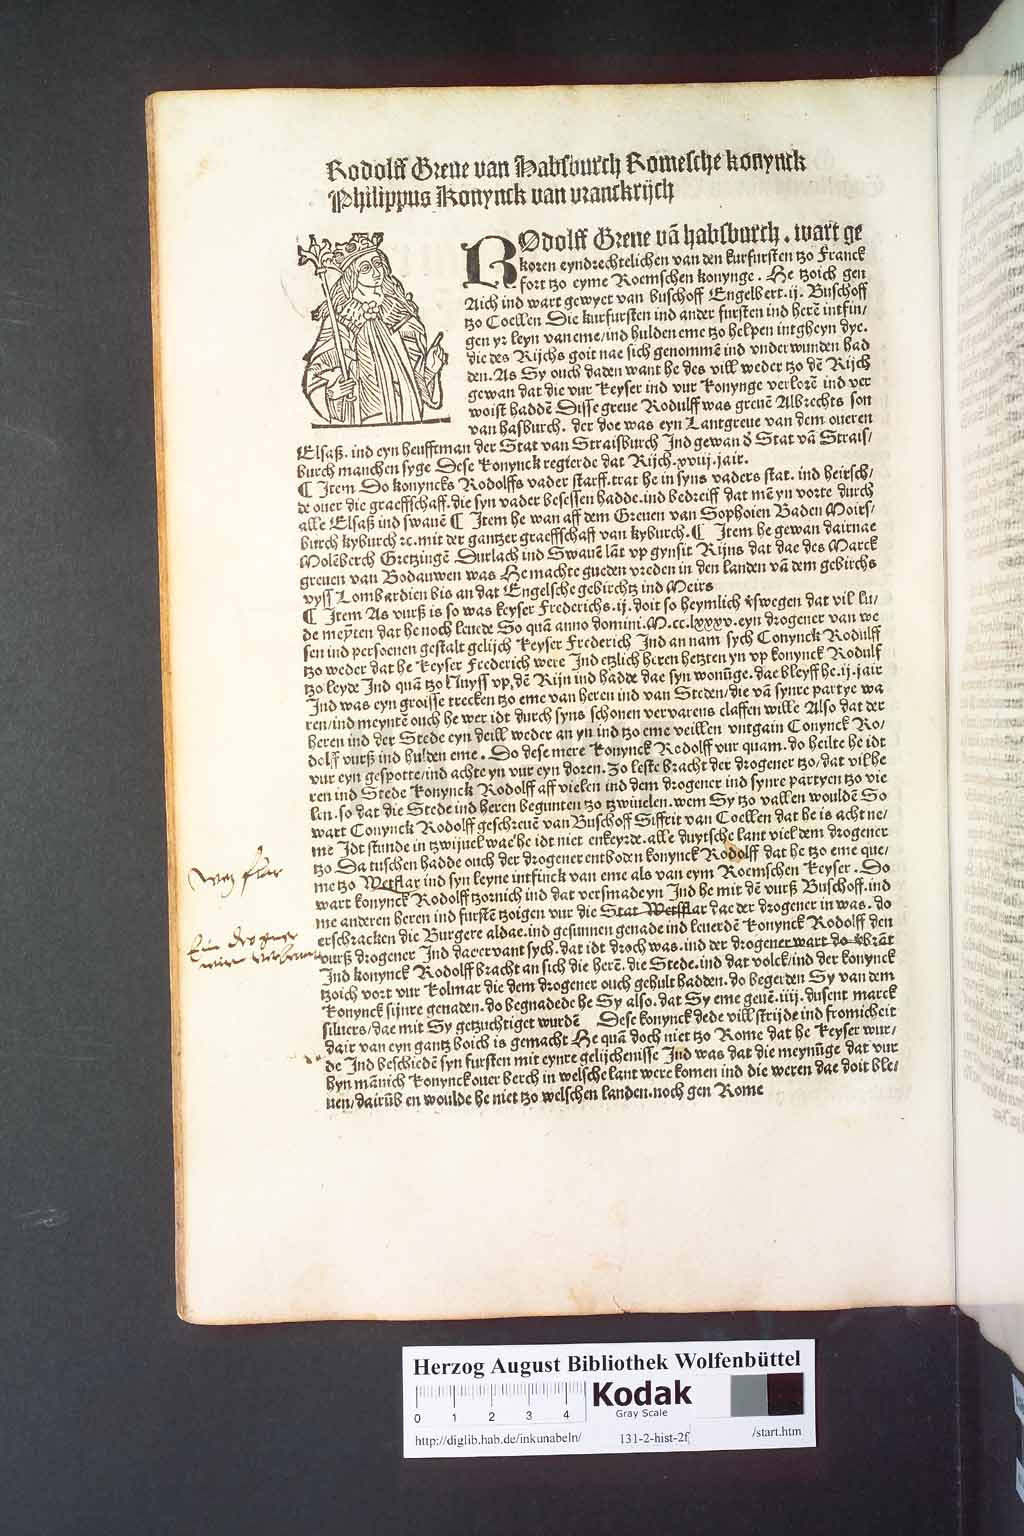 Rodolff Greue van Habsburch Romesche konynck
Philippus Konynck van vranckrijch
ROdolff Greue vā habsburch. wart ge
koren eyndrechtelichen van den kurfursten tzo Franck
fort tzo eyme Roemschen konynge. He tzoich gen
Aich ind wart gewyet van buschoff Engelbert.ij. Buschoff
tzo Coellen Die kurfursten ind ander fursten ind herē intfin/
gen yr leyn van eme/ind hulden eme tzo helpen intgheyn dye.
die des Rijchs goit nae sich genommē ind vnderwunden had
den. As Sy ouch daden want he des vill weder tzo dē Rijch
gewan dat die vur Keyser ind vur Konynge verlorē ind ver
woist haddē Disse greue Rodulff was greuē Albrechts son
van hasburch. der doe was eyn Lantgreue van dem oueren
Elsaß. ind eyn heufftman der Stat van Straisburch Ind gewan d̛ Stat vā Strais/
burch manchen syge Dese Konynck regierde dat Rijch.xvij.jair.
¶ Item Do konyncks Rodolffs vader starff.trat he in syns vaders stat. ind heirsch/
de ouer die graeffschaff.die syn vader besessen hadde.ind bedreiff dat mē yn vorte durch
alle Elsaß ind swauē ¶ Item he wan aff dem Greuen van Sophoien Baden Moirs/
burch kyburch ꝛc.mit der gantzer graeffschaff van kyburch.¶ Item he gewan dairnae
Molēberch Gretzingē Durlach ind Swauē lāt vp gynsit Rijns dat dae des Marck
greuen van Bodauwen was He machte gueden vreden in den landen vā dem gebirchs
vyss Lombardien bis an dat Engelsche gebirchtz ind Meirs
¶ Item As vurß is so was keyser Frederichs.ij.doit so heymlich v̛swegen dat vil lu/
de meyten dat he noch leuede So quā anno domini.M.cc.lxxxv.eyn drogener van we
sen ind persoenen gestalt gelijch Keyser Frederich Ind an nam sych Conynck Rodulff
tzo weder dat he Keyser Frederich were Ind etzlich heren hetzten yn vp konynck Rodulf
tzo leyde Ind quā tzo Nuyss vp dē Rijn ind hadde dae syn wonūge.dae bleyff he.ij.jair
Ind was eyn groisse trecken tzo eme van heren ind van Steden/die vā synre partye wa
ren/ind meyntē ouch he wer idt durch syns schonen vervarens claffen wille Also dat der
heren ind der Stede eyn deill weder an yn ind tzo eme veillen vntgain Conynck Ro/
dolff vurß ind hulden eme. So dese mere Konynck Rodolff vur quam. do heilte he idt
vur eyn gespotte/ind achte yn vur eyn doren. Zo leste bracht der drogener tzo/dat vil he
ren ind Stede Konynck Rodolff aff vielen ind dem drogener ind synre partyen tzo vie
len.so dat die Stede ind heren begunten tzo tzwiuelen.wem Sy tzo vallen wouldē So
wart Conynck Rodolff geschreuē van Buschoff Siffrit van Coellen dat he is acht ne/
me Idt stunde in tzwijuel wae he idt niet enkeyrde.alle duytsche lant viel dem drogener
tzo Da tuschen hadde ouch der drogener entboden konynck Rodolff dat he tzo eme que/
me tzo Wetflar ind syn leyne intfinck van eme als van eym Roemschen Keyser. Do
wart konynck Rodolff tzornich ind dat versmade yn Ind he mit dē vurß Buschoff.ind
me anderen heren ind furstē tzoigen vur die Stat Wetsflar dae der drogener in was. do
erschracken die Burgere aldae.ind gesunnen genade ind leuerdē Konynck Rodolff den
vurß drogener Ind daer vant sych.dat idt droch was.ind der drogener wart do v̛brāt
Ind konynck Rodolff bracht an sich die herē. die Stede.ind dat volck/ind der konynck
tzoich vort vur Kolmar die dem drogener ouch gehult hadden. do begerden Sy van dem
Konynck sijnre genaden.do begnadede he Sy also.dat Sy eme geuē.iiij.dusent marck
siluers/dae mit Sy getzuchtiget wurdē Dese konynck dede vill strijde ind fromicheit
dair van eyn gantz boich is gemacht He quā doch niet tzo Rome dat he Keyser wur/
de Ind beschiedē syn fursten mit eynre gelijchenisse Ind was dat die meynūge dat vur
hyn mānich Konynck ouer berch in welsche lant were komen ind die weren dae doit ble/
uen/dairūb en woulde he niet tzo welschen landen.noch gen Rome
wez flar
Ein drogner
wirt verbrant
Herzog August Bibliothek Wolfenbüttel
0 1 2 3 4
Kodak
Gray Scale
http://diglib.hab.de/inkunabeln/ 131-2-hist-2f /start.htm